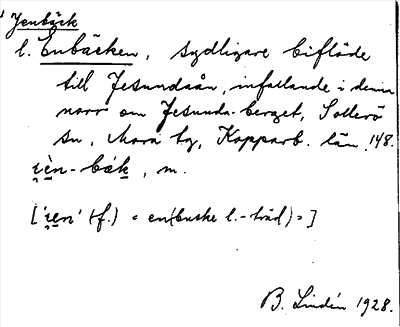 Jenbäck
l. Enbäcken, sydligare biflöde
till Jesundaån, infallande i denna
norr om Jesunda-berget, Sollerö
sn, Mora tg, Kopparb. län. 148.
ìèn-bák, m.
['ien' (f.) = en(buske l. -träd) = ]
B. Lindén 1928.